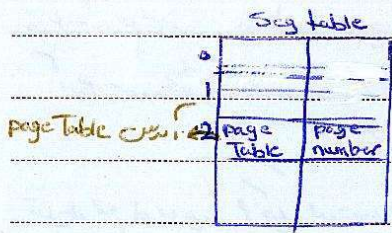 Seg table
0
1
آدرس page Table
2 page Table
page number